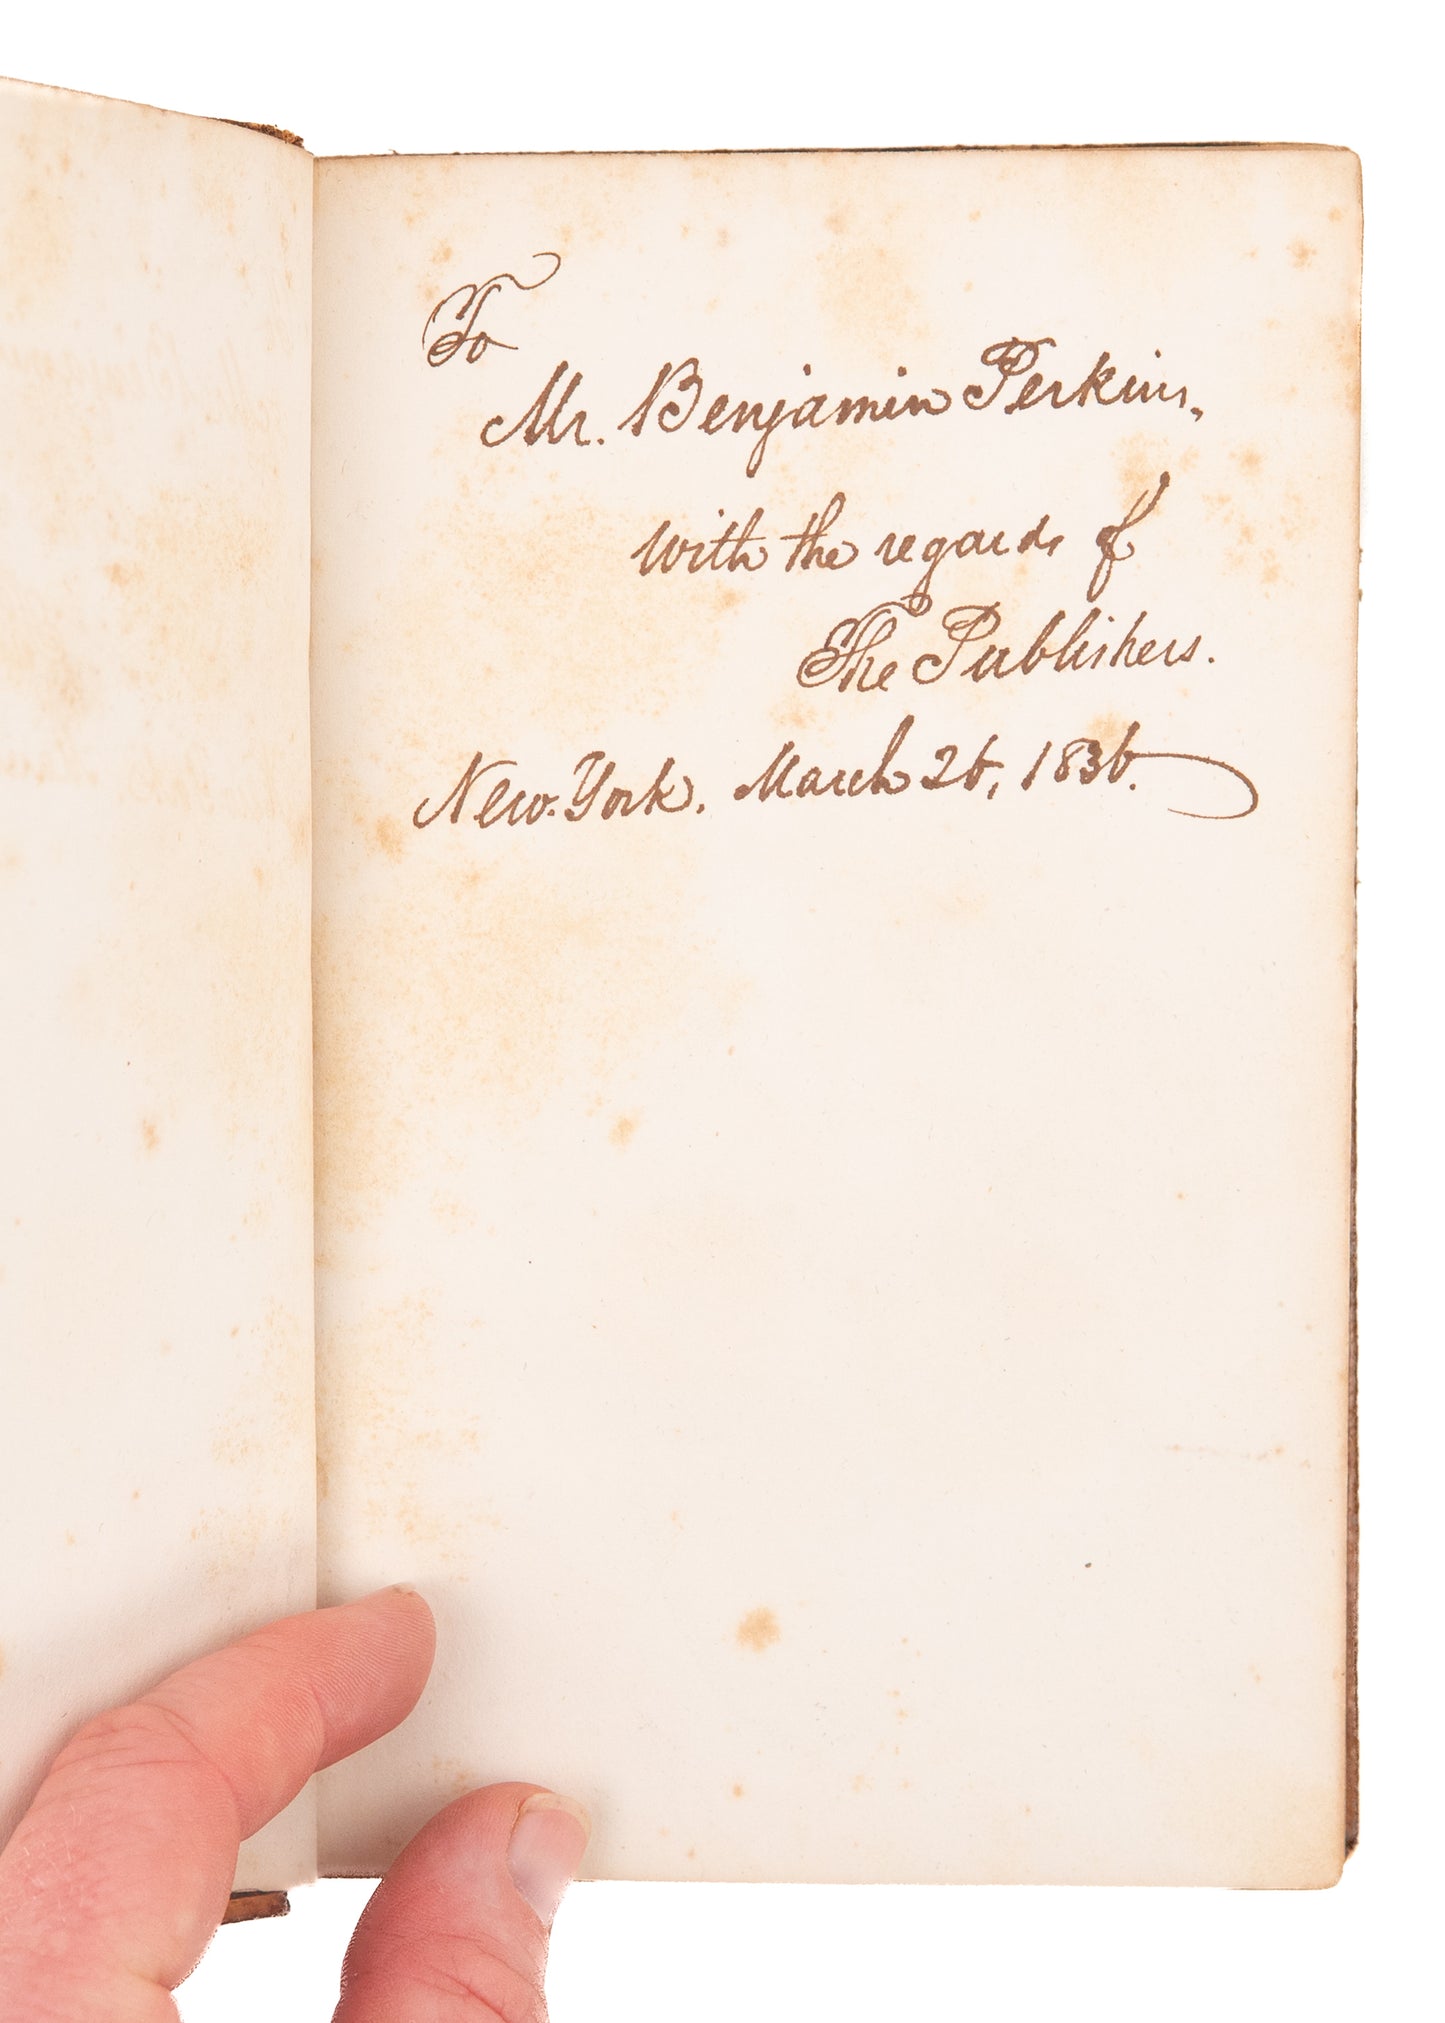 To
Mr. Benjamin Perkins,
with the regards of
The Publishers.
New-York, March 26, 1836.